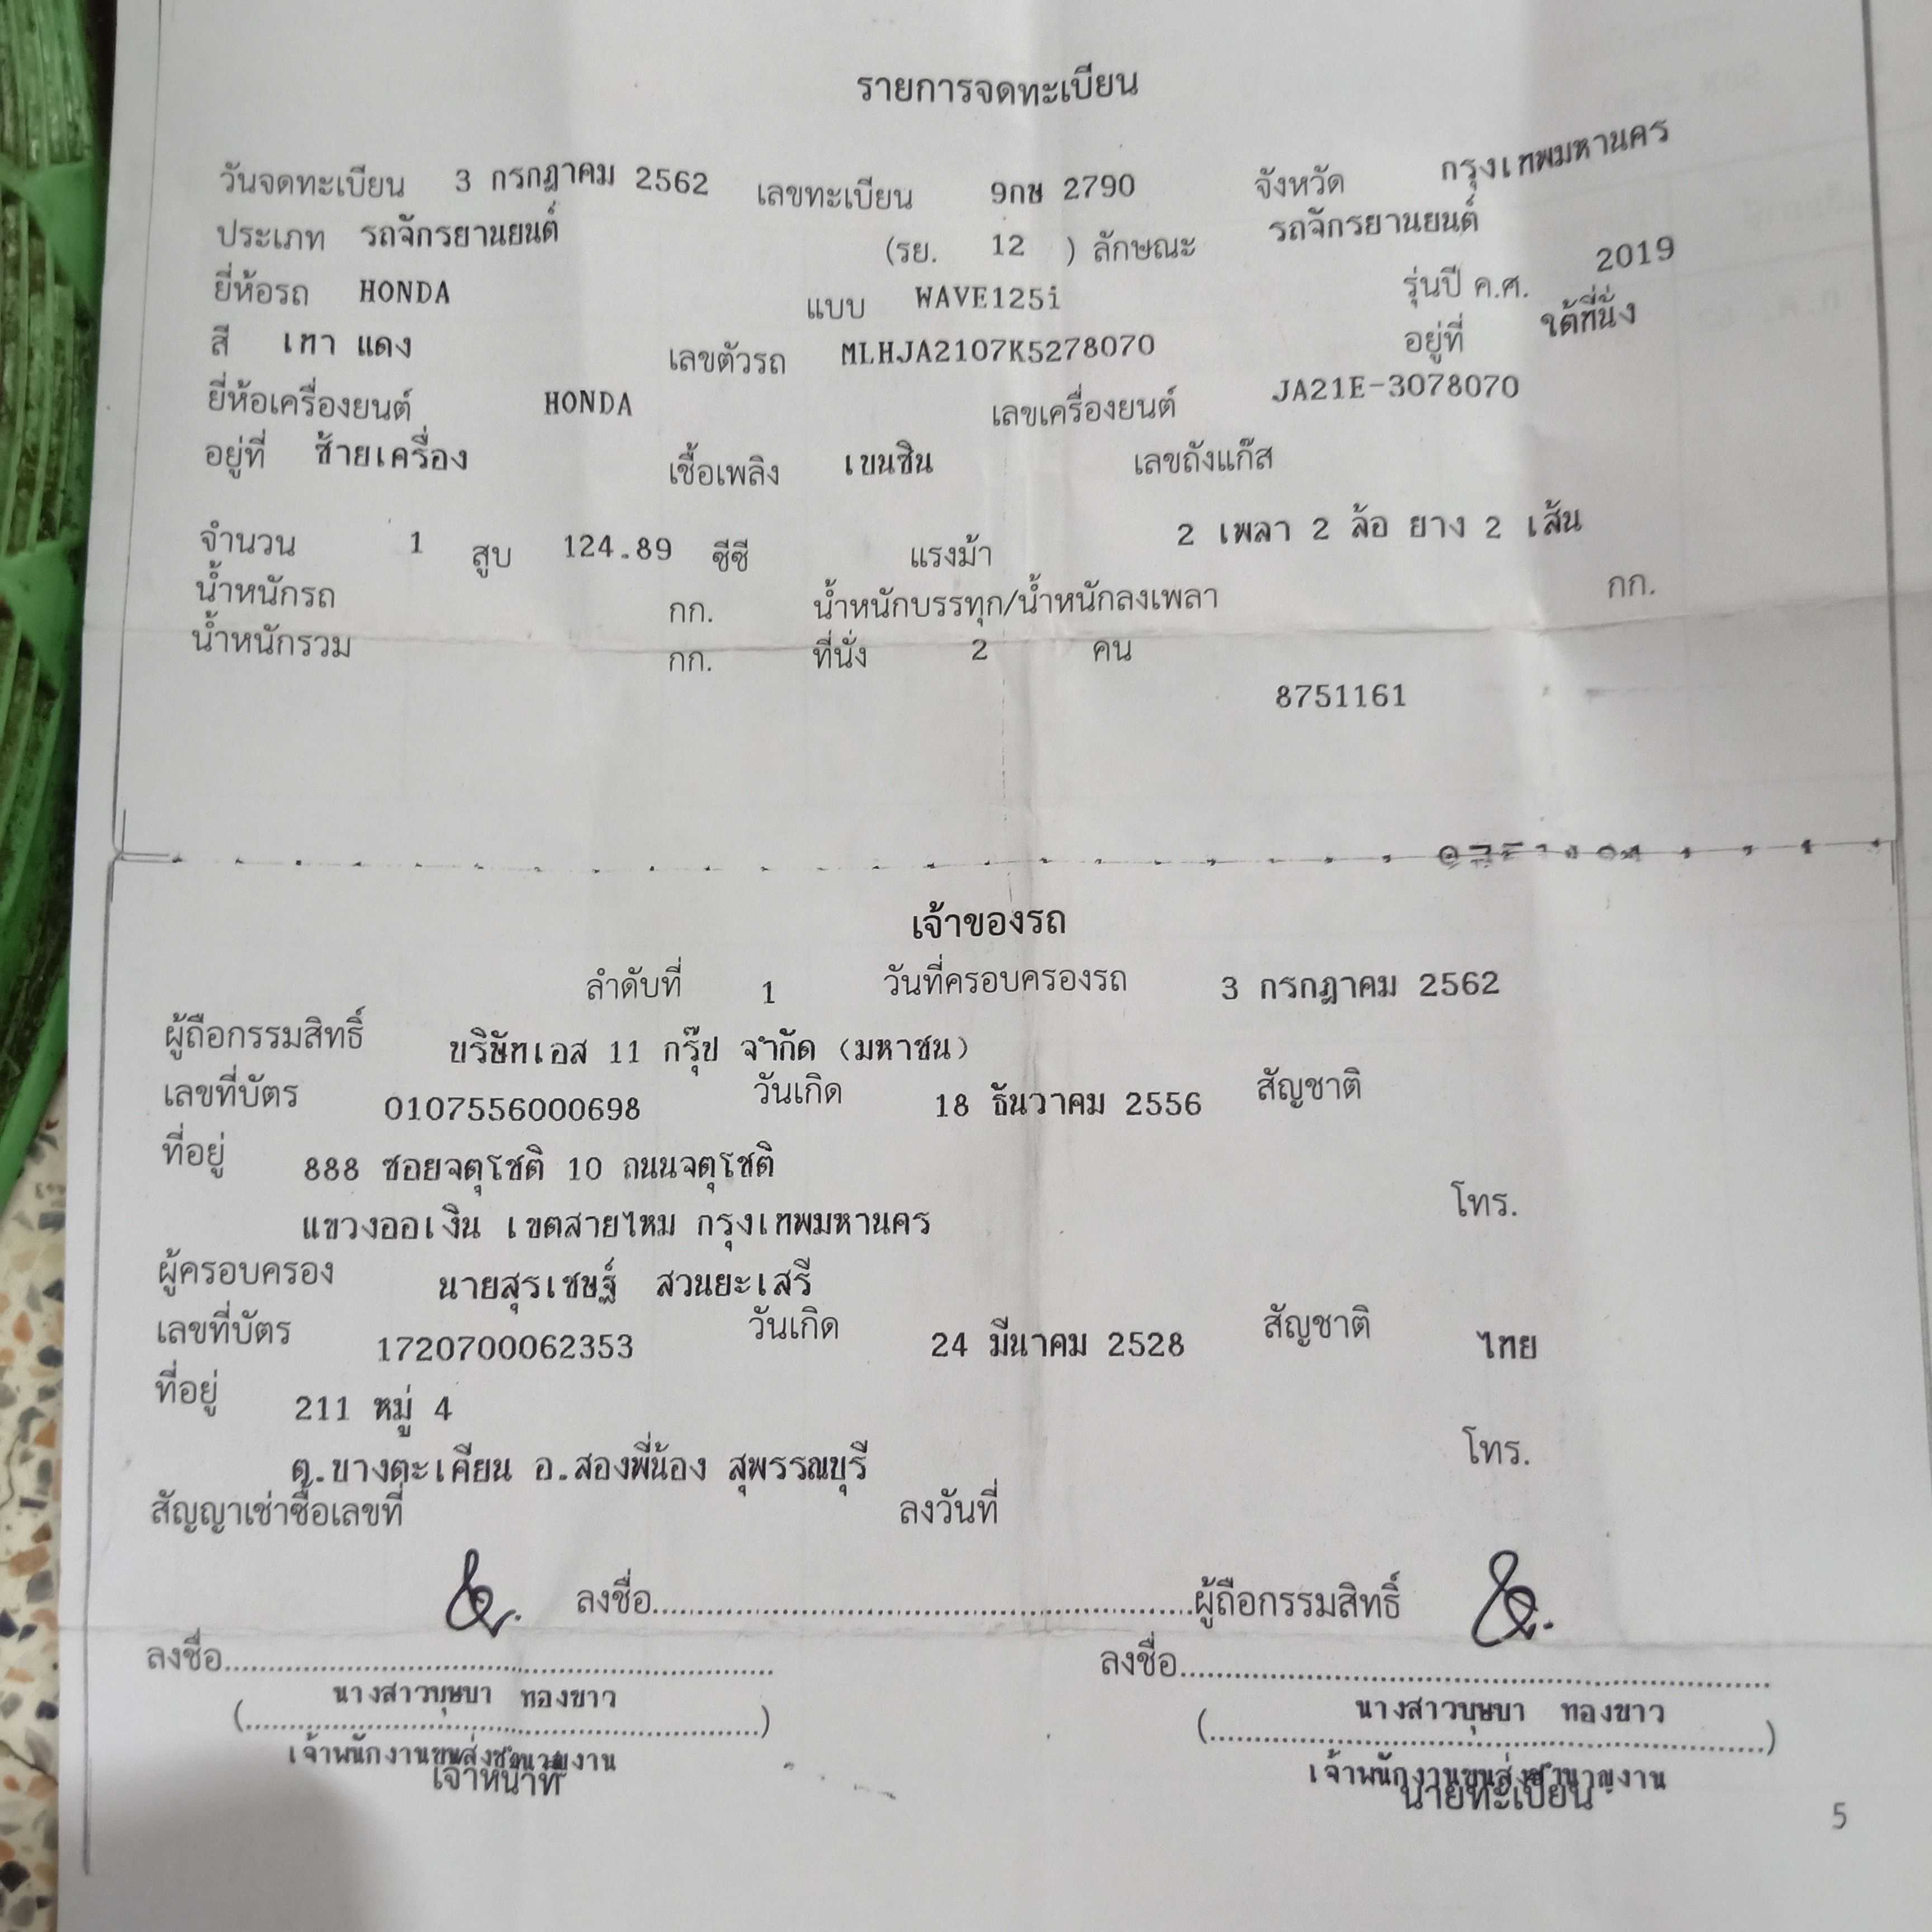 รายการจดทะเบียน
วันจดทะเบียน 3 กรกฎาคม 2562 เลขทะเบียน 9กษ 2790 จังหวัด กรุงเทพมหานคร
ประเภท รถจักรยานยนต์ (รย. 12 ) ลักษณะ รถจักรยานยนต์
ยี่ห้อรถ HONDA แบบ WAVE125i รุ่นปี ค.ศ. 2019
สี เทา แดง เลขตัวรถ MLHJA2107K5278070 อยู่ที่ ใต้ที่นั่ง
ยี่ห้อเครื่องยนต์ HONDA เลขเครื่องยนต์ JA21E-3078070
อยู่ที่ ซ้ายเครื่อง เชื้อเพลิง เบนซิน เลขถังแก๊ส
จำนวน 1 สูบ 124.89 ซีซี แรงม้า 2 เพลา 2 ล้อ ยาง 2 เส้น
น้ำหนักรถ กก. น้ำหนักบรรทุก/น้ำหนักลงเพลา กก.
น้ำหนักรวม กก. ที่นั่ง 2 คน
8751161
เจ้าของรถ
ลำดับที่ 1 วันที่ครอบครองรถ 3 กรกฎาคม 2562
ผู้ถือกรรมสิทธิ์ บริษัทเอส 11 กรุ๊ป จำกัด (มหาชน)
เลขที่บัตร 0107556000698 วันเกิด 18 ธันวาคม 2556 สัญชาติ
ที่อยู่ 888 ซอยจตุโชติ 10 ถนนจตุโชติ
แขวงออเงิน เขตสายไหม กรุงเทพมหานคร โทร.
ผู้ครอบครอง นายสุรเชษฐ์ สวนยะเสรี
เลขที่บัตร 1720700062353 วันเกิด 24 มีนาคม 2528 สัญชาติ ไทย
ที่อยู่ 211 หมู่ 4
ต.บางตะเคียน อ.สองพี่น้อง สุพรรณบุรี โทร.
สัญญาเช่าซื้อเลขที่ ลงวันที่
ลงชื่อ..........ผู้ถือกรรมสิทธิ์
ลงชื่อ.......... ลงชื่อ..........
(นางสาวบุษบา ทองขาว) (นางสาวบุษบา ทองขาว)
เจ้าพนักงานขนส่งชำนาญงาน เจ้าพนักงานขนส่งชำนาญงาน
เจ้าหน้าที่ นายทะเบียน
5